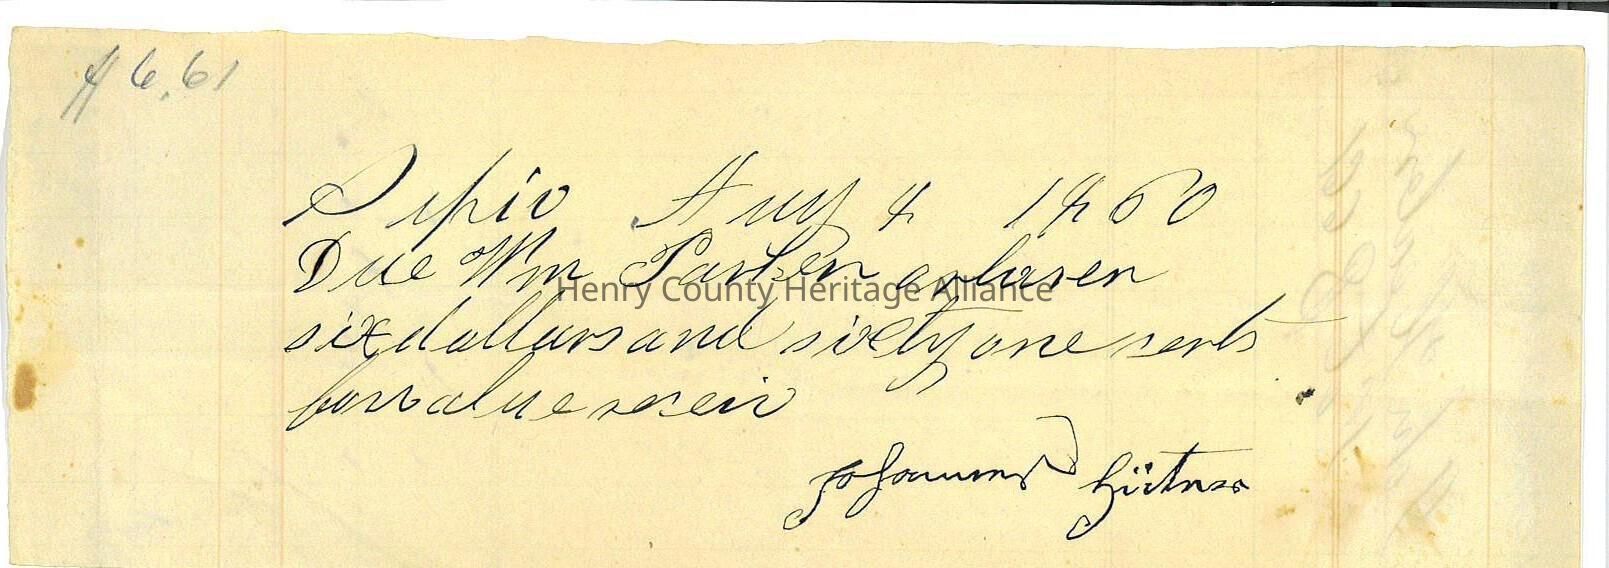 $ 6.61
Aug 4 1860
Due Wm Parker or barer
six dollars and sixty one cents
for value receiv
Johannes
Henry County Heritage Alliance